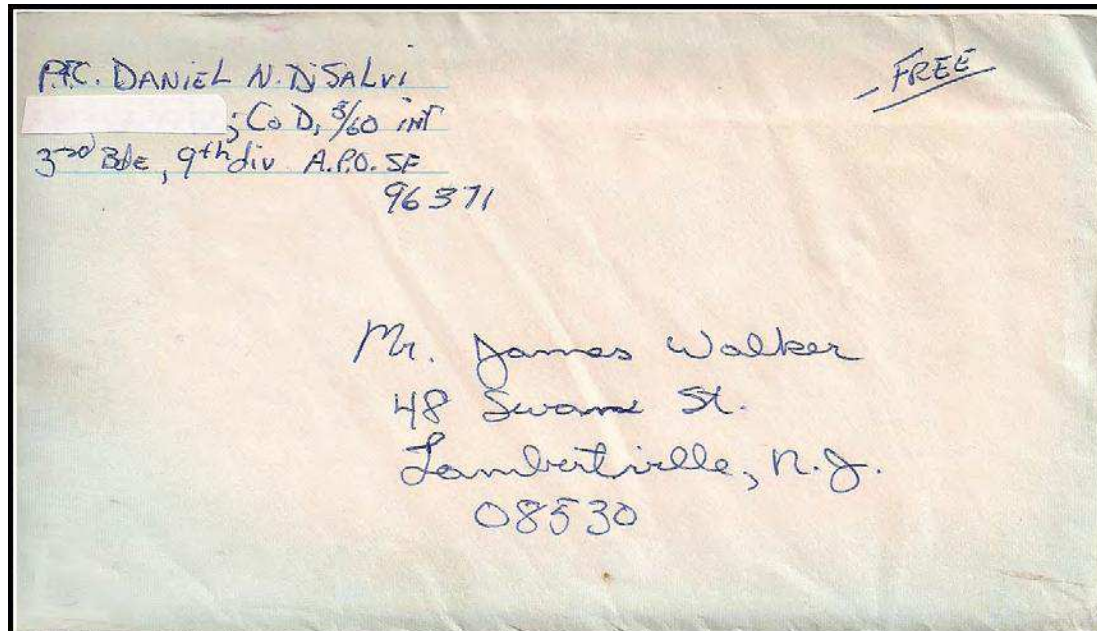 PFC. DANIEL N. DiSALVi
FREE
; Co D, 3/60 inf
3rd Bde, 9th div A.P.O. SF
96371
Mr. James Walker
48 Swan St.
Lambertville, N.J.
08530